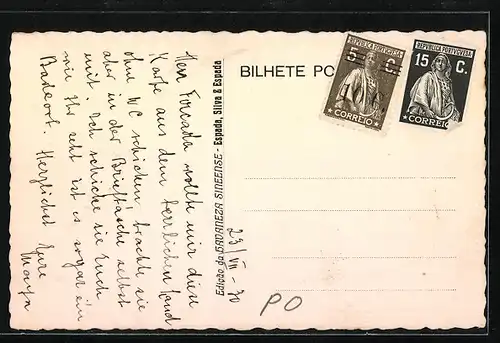 Herr Forcada wollte mir diese
Karte aus dem herrlichen Land
ohne WC schicken, brachte sie
aber in der Brieftasche selbst
mit. Ich schicke sie Euch
wie Ihr seht ist es sogar ein
Badeort. Herzlichst Eure
Maya
Edição da BARDANEZA SINEENSE - Espada, Silva & Espada
23/VII - 30
BILHETE PO
REPUBLICA PORTUGUESA
5 C.
CORREIO
REPUBLICA PORTUGUESA
15 C.
CORREIO
PO